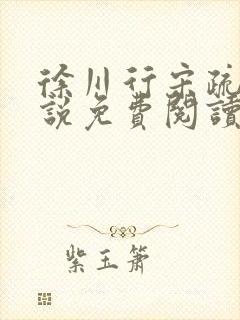 徐川行宋疏
說免費閱讀
紫玉簫